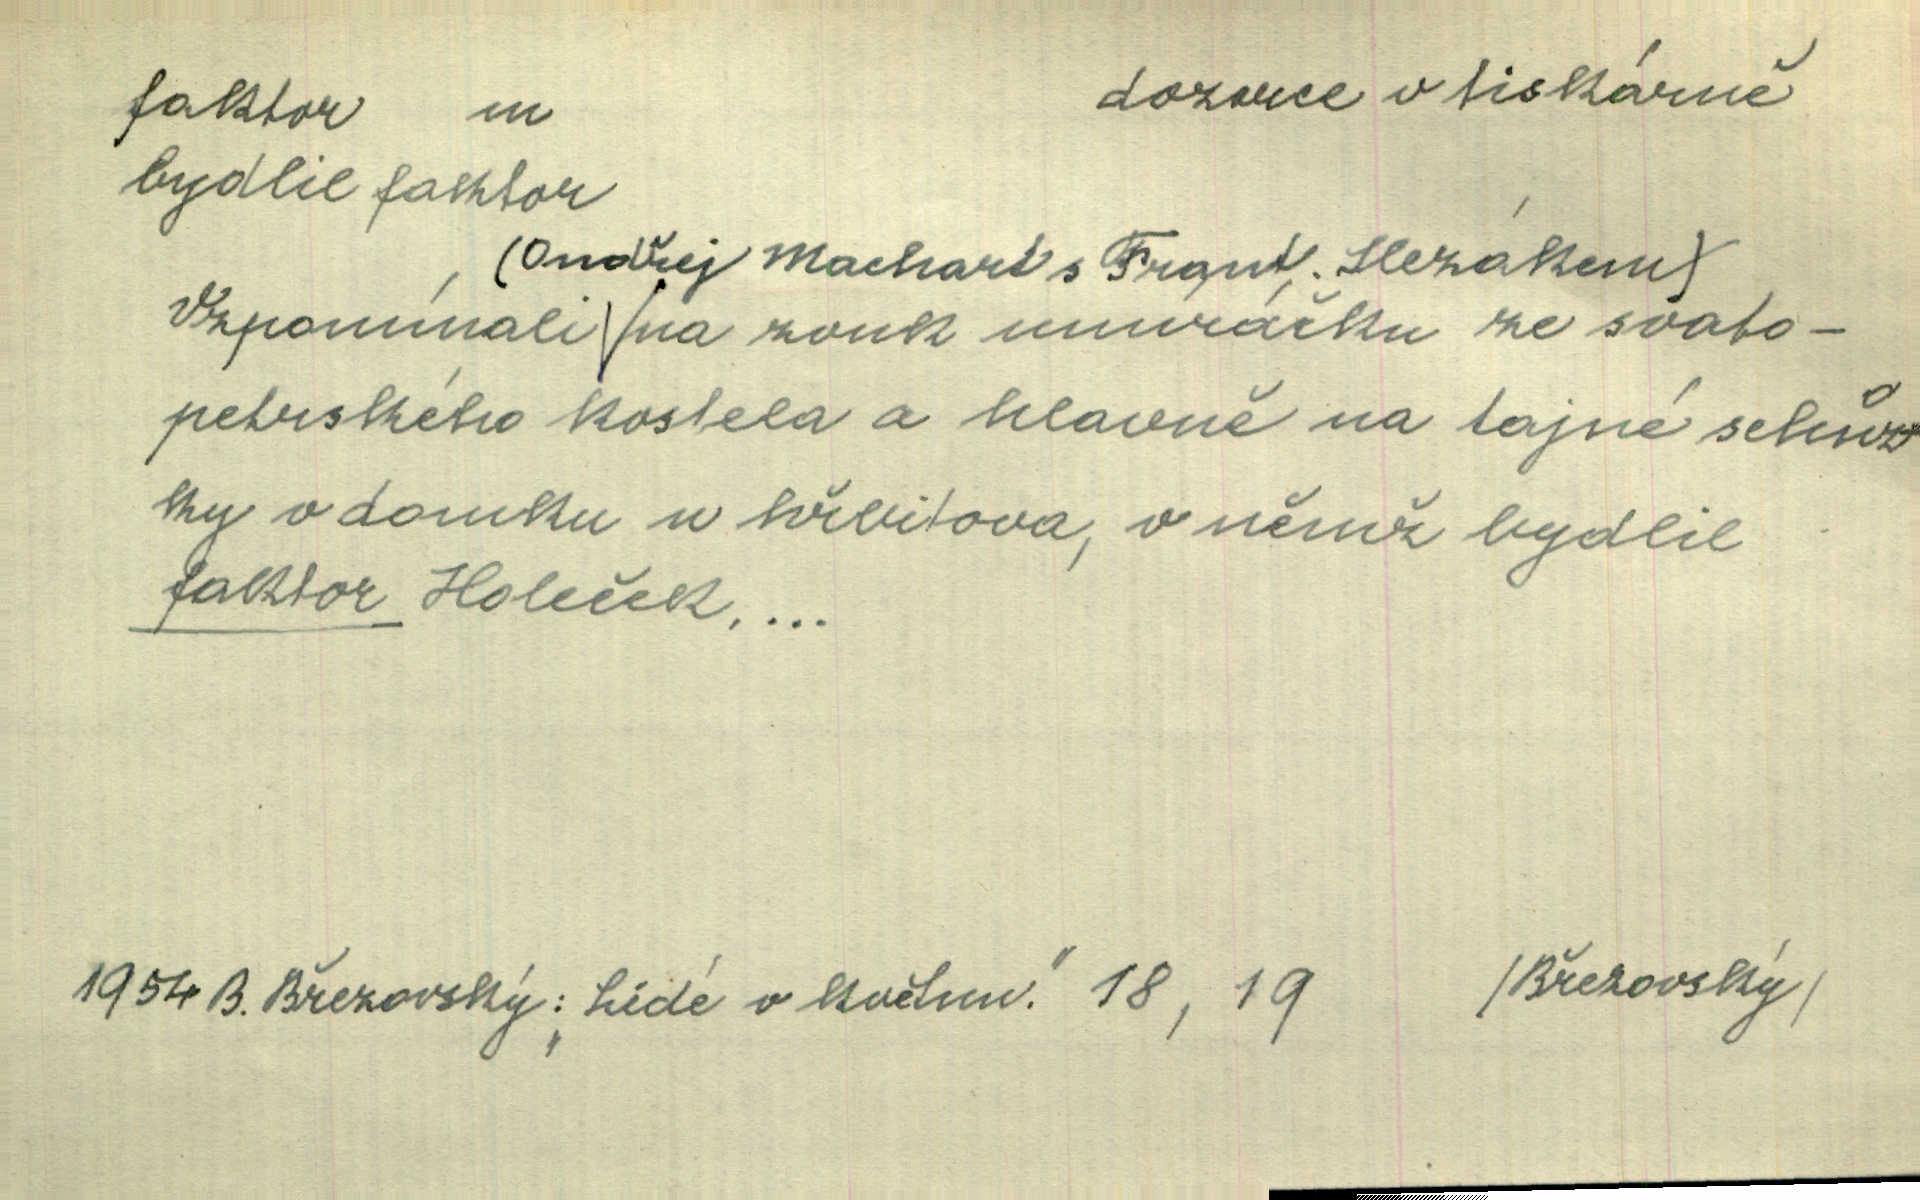 faktor m dozorce v tiskárně
bydlil faktor
(Ondřej Machart s Frant. Slezákem)
Vzpomínali na zvuk umíráčku ze svato-
petrského kostela a hlavně na tajné schůz
ky v domku u hřbitova, v němž bydlil
faktor Holeček, ...
1954 B. Březovský: „Lidé v květnu." 18, 19 /Březovský/